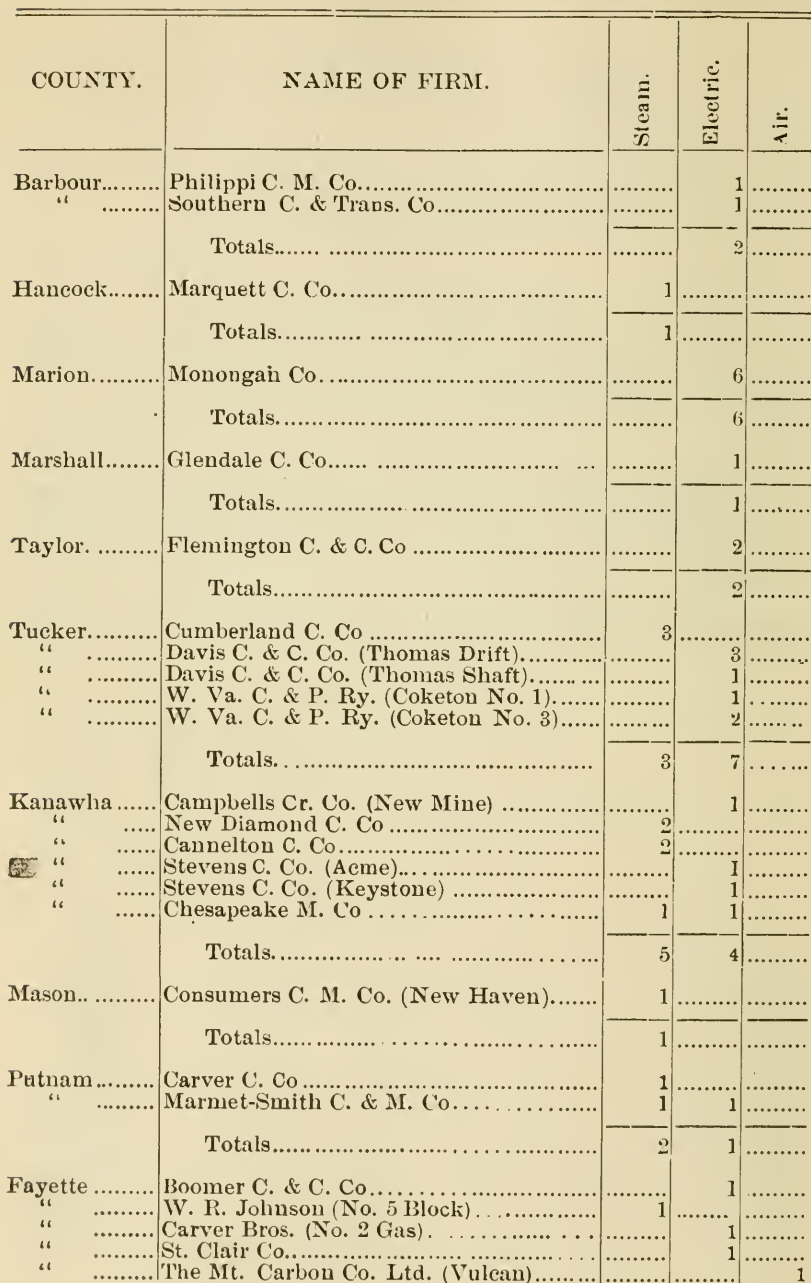 COUNTY. NAME OF FIRM. Steam. Electric. Air.
Barbour......... Philippi C. M. Co................................... ......... 1 .........
“ ......... Southern C. & Trans. Co....................... ......... 1 .........
Totals...... .................................... ......... 2 .........
Hancock........ Marquett C. Co....................................... 1 ......... .........
Totals............ .............................. 1 ......... .........
Marion.......... Monongah Co......................................... ......... 6 .........
Totals.............................................. ......... 6 .........
Marshall........ Glendale C. Co...... ........................ ... ......... 1 .........
Totals.............................................. ......... 1 .........
Taylor. ......... Flemington C. & C. Co .......................... ......... 2 .........
Totals.............................................. ......... 2 .........
Tucker.......... Cumberland C. Co ................................ 3 ......... .........
“ .......... Davis C. & C. Co. (Thomas Drift)............ ......... 3 .........
“ .......... Davis C. & C. Co. (Thomas Shaft)........ . ......... 1 .........
“ .......... W. Va. C. & P. Ry. (Coketon No. 1)....... ......... 1 .........
“ .......... W. Va. C. & P. Ry. (Coketon No. 3)...... ......... 2 .........
Totals. ........................................... 3 7 .......
Kanawha ...... Campbells Cr. Co. (New Mine) .............. ......... 1 .........
“ ..... New Diamond C. Co .............................. 2 ......... .........
“ ...... Cannelton C. Co..................................... 2 ......... .........
“ ...... Stevens C. Co. (Acme)............................ ......... 1 .........
“ ...... Stevens C. Co. (Keystone) ..................... ......... 1 .........
“ ...... Chesapeake M. Co ................................ 1 1 .........
Totals................ .... ..................... 5 4 .........
Mason.. ......... Consumers C. M. Co. (New Haven)....... 1 ......... .........
Totals.............. ............................... 1 ......... .........
Putnam......... Carver C. Co .......................................... 1 ......... .........
“ ......... Marmet-Smith C. & M. Co................. 1 1 .........
Totals.............................................. 2 1 .........
Fayette ......... Boomer C. & C. Co............................... ......... 1 .........
“ ......... W. R. Johnson (No. 5 Block)............... 1 ......... .........
“ ......... Carver Bros. (No. 2 Gas). ............. ... ......... 1 .........
“ ......... St. Clair Co.......................................... ......... 1 .........
“ ......... The Mt. Carbon Co. Ltd. (Vulcan)......... ......... ......... 1